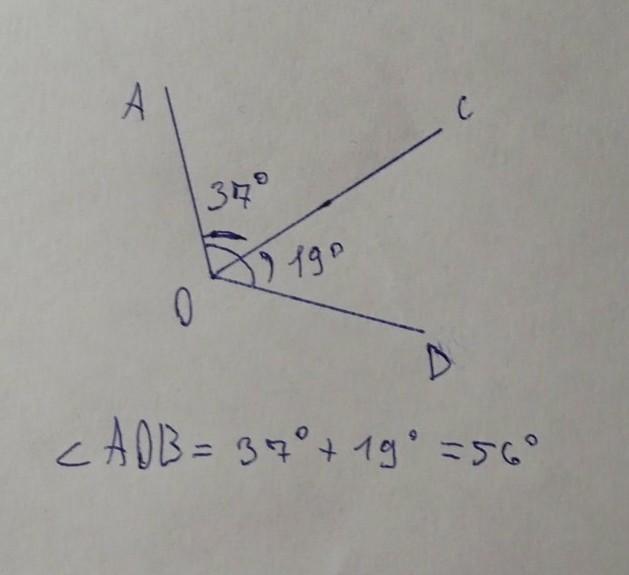 A
C
37°
19°
O
B
∠AOB = 37° + 19° = 56°